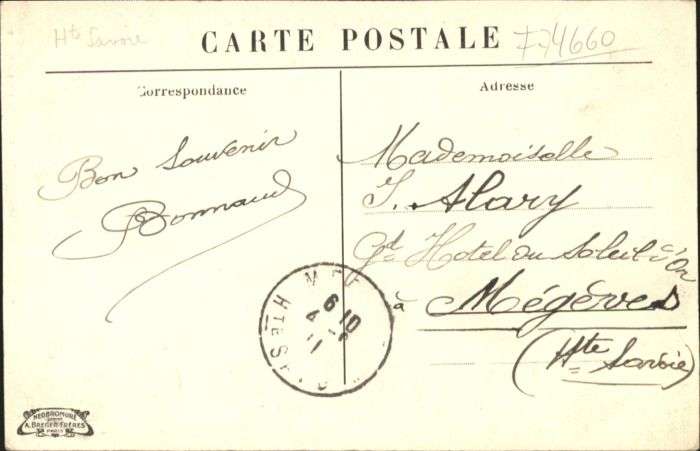 Hte Savoie
F74660
CARTE POSTALE
Correspondance
Adresse
Bon Souvenir
Bonnaud
Mademoiselle
J. Alary
Gd Hotel du Soleil d'Or
à Mégèves
(Hte Savoie)
6 10
4
HTE S
NEOBROMURE
A. BREGER FRÈRES
PARIS